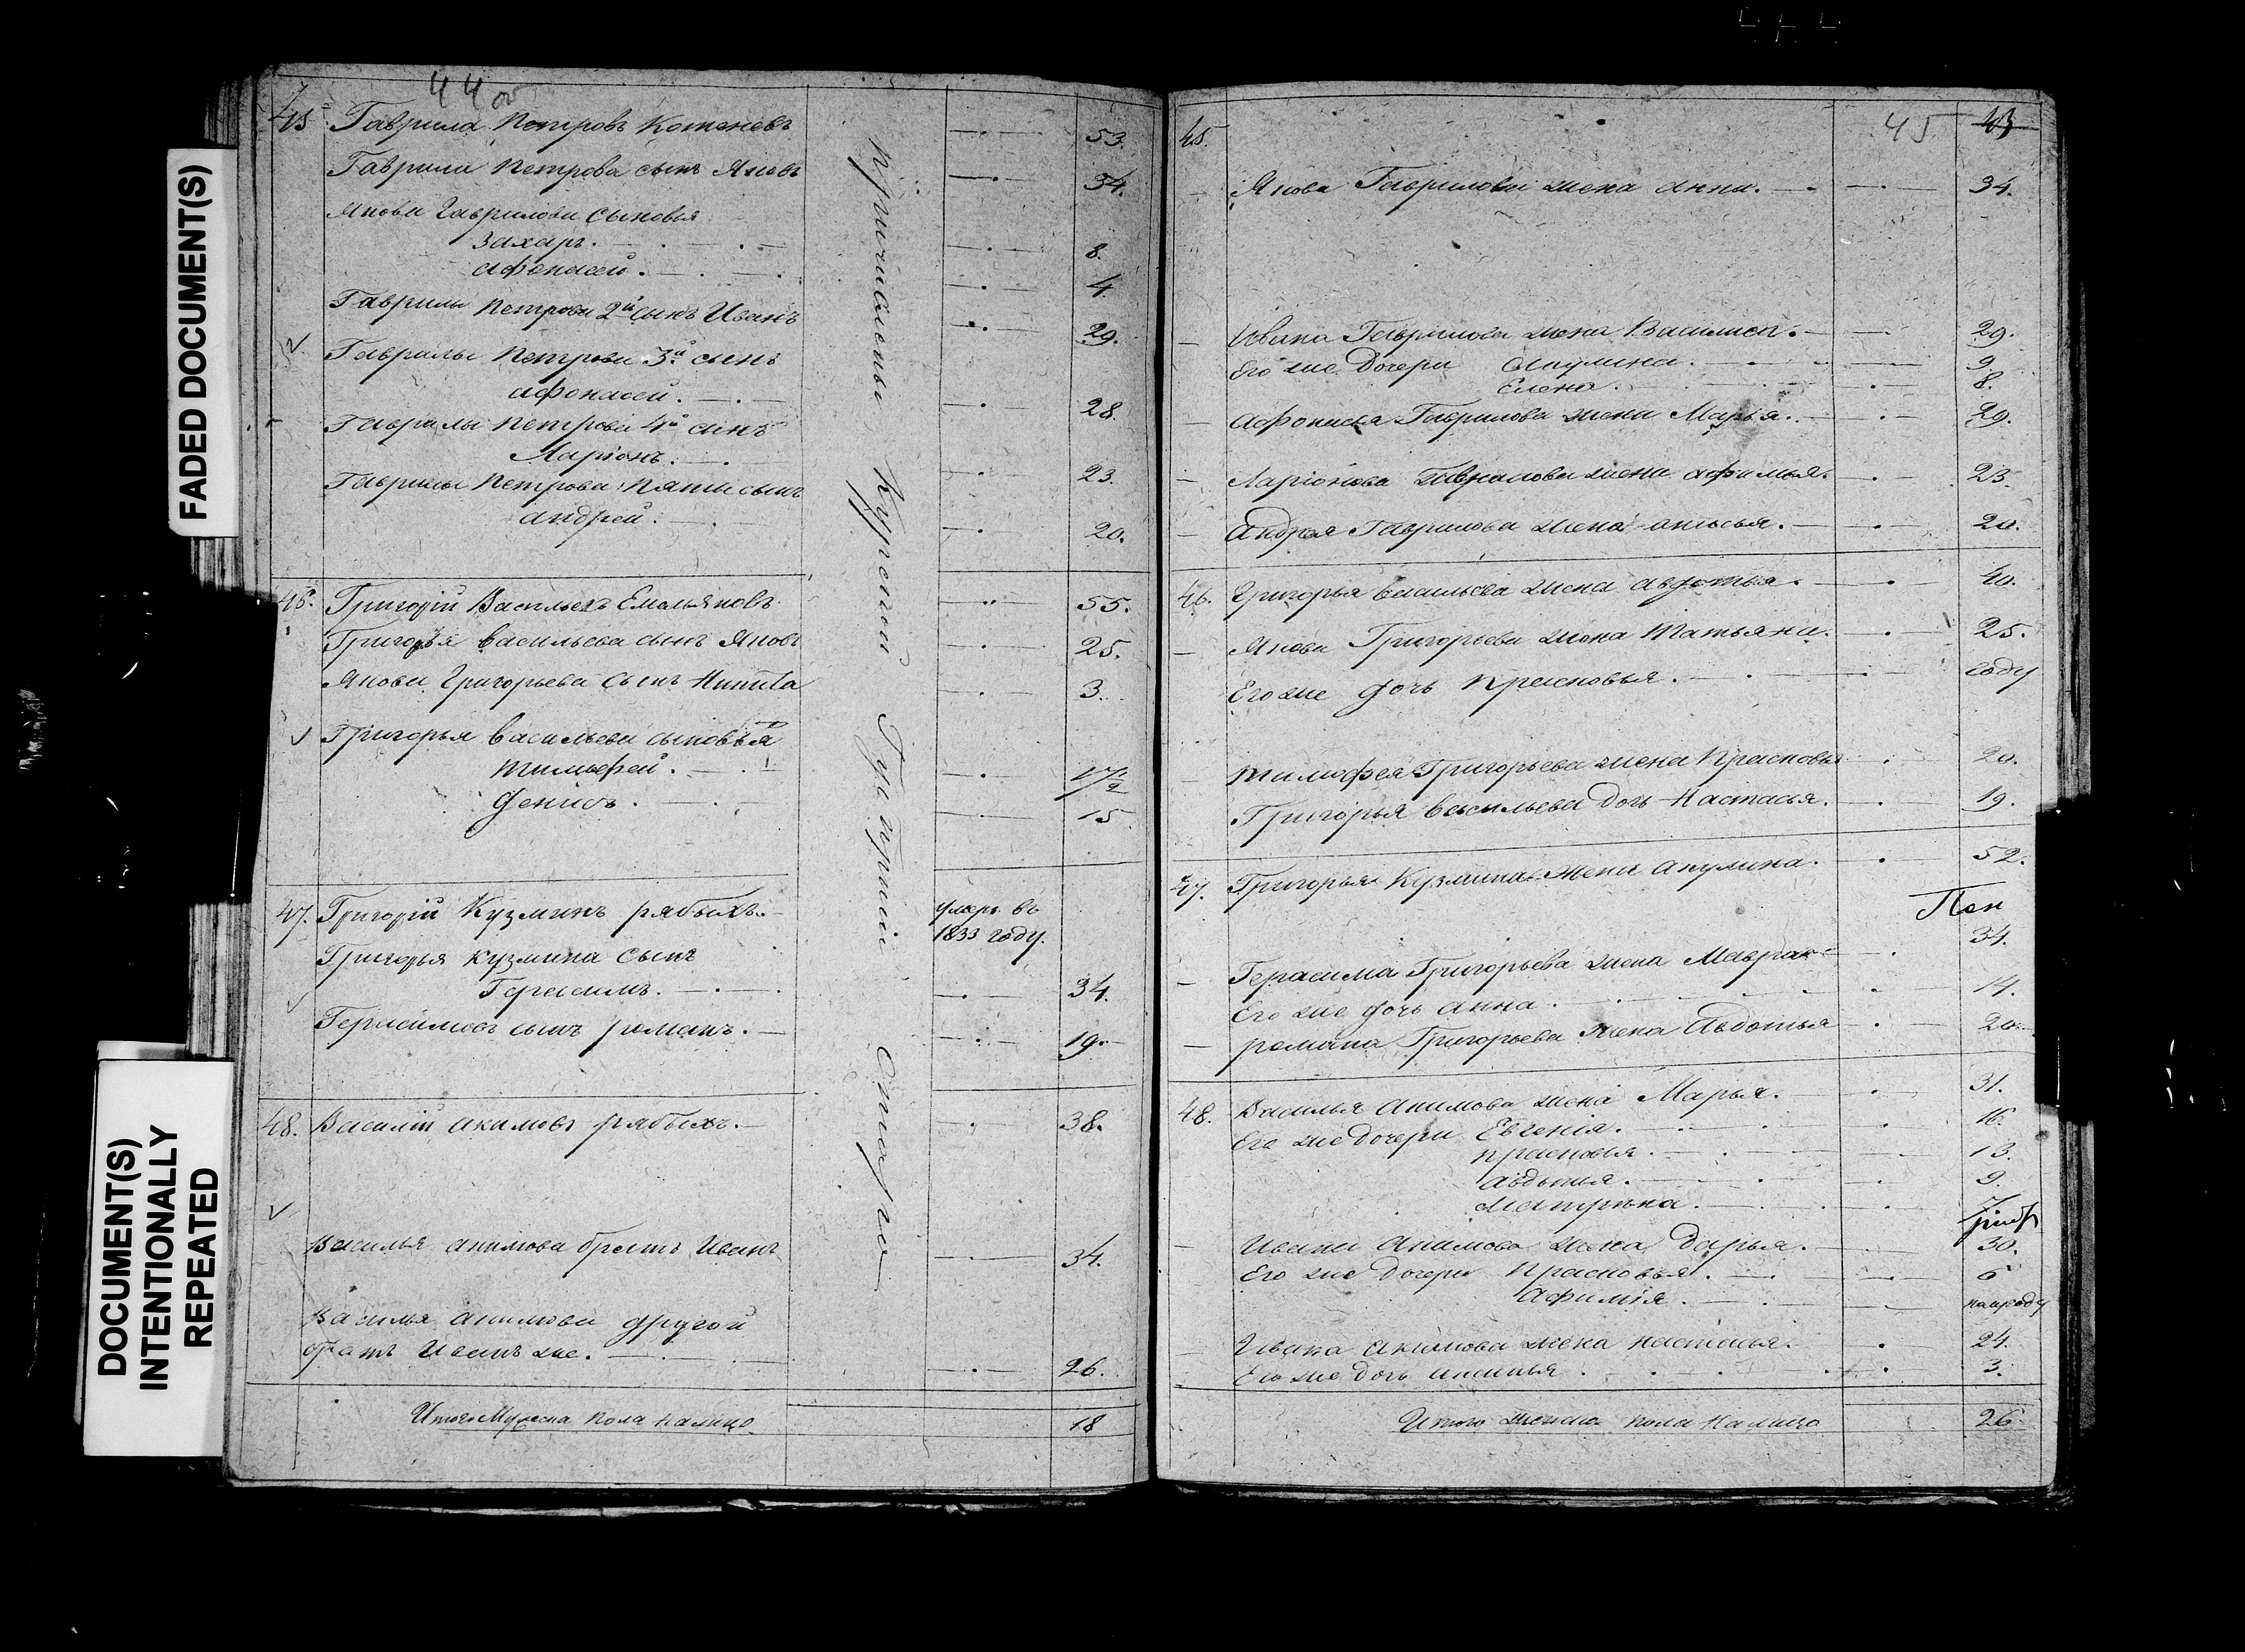 44 об
45. Гаврила Петровъ Котеневъ 53.
Гаврилы Петрова сынъ Яковъ 34.
Якова Гаврилова сыновья
Захаръ. 8.
Афонасей. 4
Гаврилы Петрова 2й сынъ Иванъ 29.
Гаврилы Петрова 3й сынъ
Афонасей. 28.
Гаврилы Петрова 4й сынъ
Ларіонъ. 23.
Гаврилы Петрова пяти сынъ
Андрей. 20.
46. Григорій Васильевъ Емельяновъ 55.
Григорья Васильева сынъ Яковъ 25.
Якова Григорьева сынъ Никита 3.
Григорья Васильева сыновья
Тимофей. 17 1/2
Денисъ. 15
47. Григорій Кузминъ рябыхъ. умеръ въ
1833 году.
Григорья Кузмина сынъ
Герасимъ. 34.
Герасимовъ сынъ романъ. 19.
48. Василій Акимовъ рябыхъ. 38.
Василья Акимова братъ Иванъ 34.
Василья Акимова другой
братъ Иванъ же. 26.
Итого Мужеска пола налицо 18
Причислены Курской Губерніи Старо
45 43
45.
Якова Гаврилова жена Анна. 34.
Ивана Гаврилова жена Василиса. 29.
Его же Дочери Акулина. 9.
Елена. 8.
Афонасья Гаврилова жена Марья. 29.
Ларіонова Гаврилова жена Афимья. 23.
Андрея Гаврилова жена 20.
46. Григорья Васильева жена Авдотья. 40.
Якова Григорьева жена Татьяна. 25.
Его же дочь Прасковья. году
Тимофея Григорьева жена Прасковья 20.
Григорья Васильева дочь Настасья. 19.
47. Григорья Кузмина жена Акулина. 52.
Герасима Григорьева жена Мавра 34.
Его же дочь Анна. 14.
романа Григорьева жена Авдотья 20.
48. Василья Акимова жена Марья. 31.
Его же дочери Евгенія. 16.
Прасковья. 13.
Авдотья. 9.
Матрена. 7
Ивана Акимова жена Дарья. 30.
Его же дочери Прасковья. 6
Афимія. полугоду
Ивана Акимова жена настасья. 24.
Его же дочь 3.
Итого женска пола налицо 26
FADED DOCUMENT(S)
DOCUMENT(S)
INTENTIONALLY
REPEATED